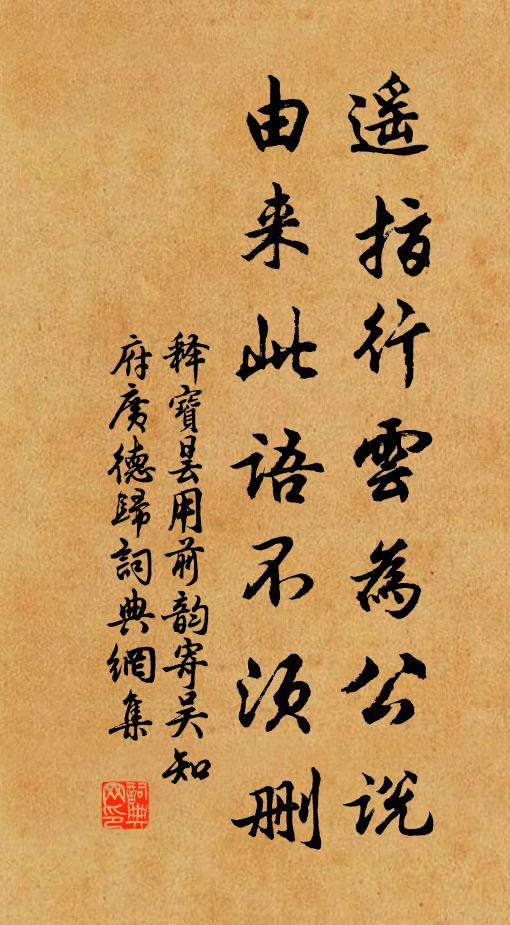 遥指行雲為公説
由来此語不須删
释寶昙用前韵寄吴知
府廣德歸詞典網集
詞典
网印